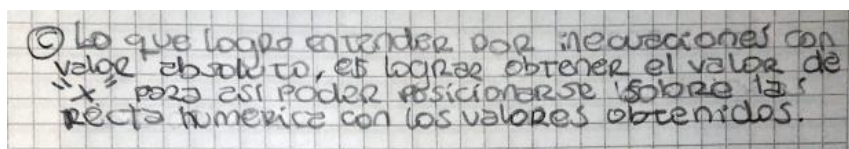 © Lo que logro entender por inecuaciones con
valor absoluto, es lograr obtener el valor de
"x" para así poder posicionarse sobre las
recta numerica con los valores obtenidos.